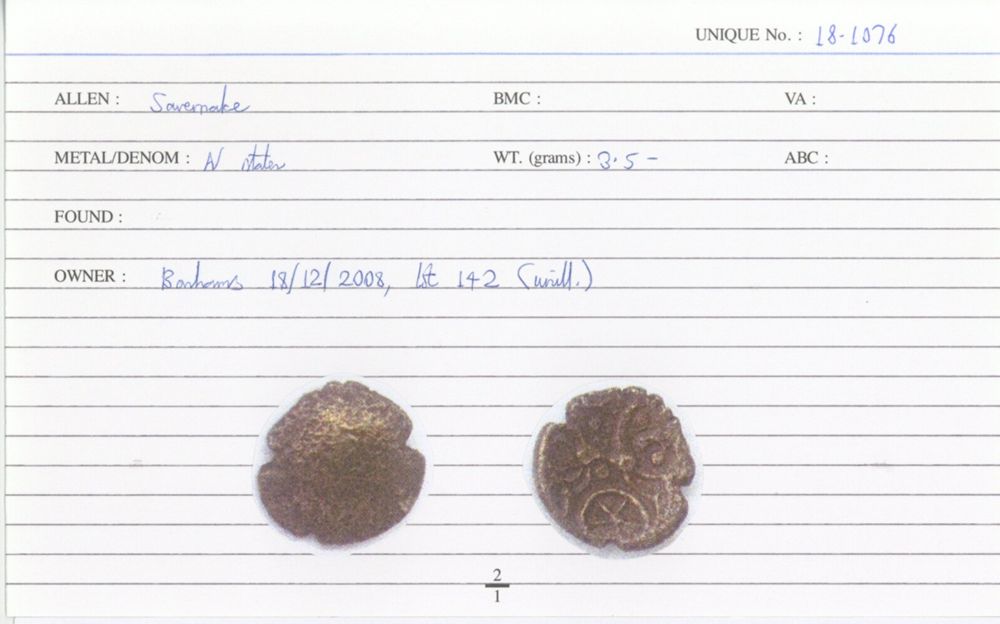 UNIQUE No. : 18-1076
ALLEN : Savernake BMC : VA :
METAL/DENOM : N stater WT. (grams) : 3.5- ABC :
FOUND :
OWNER : Bonhams 18/12/2008, lot 142 (unill.)
2
1